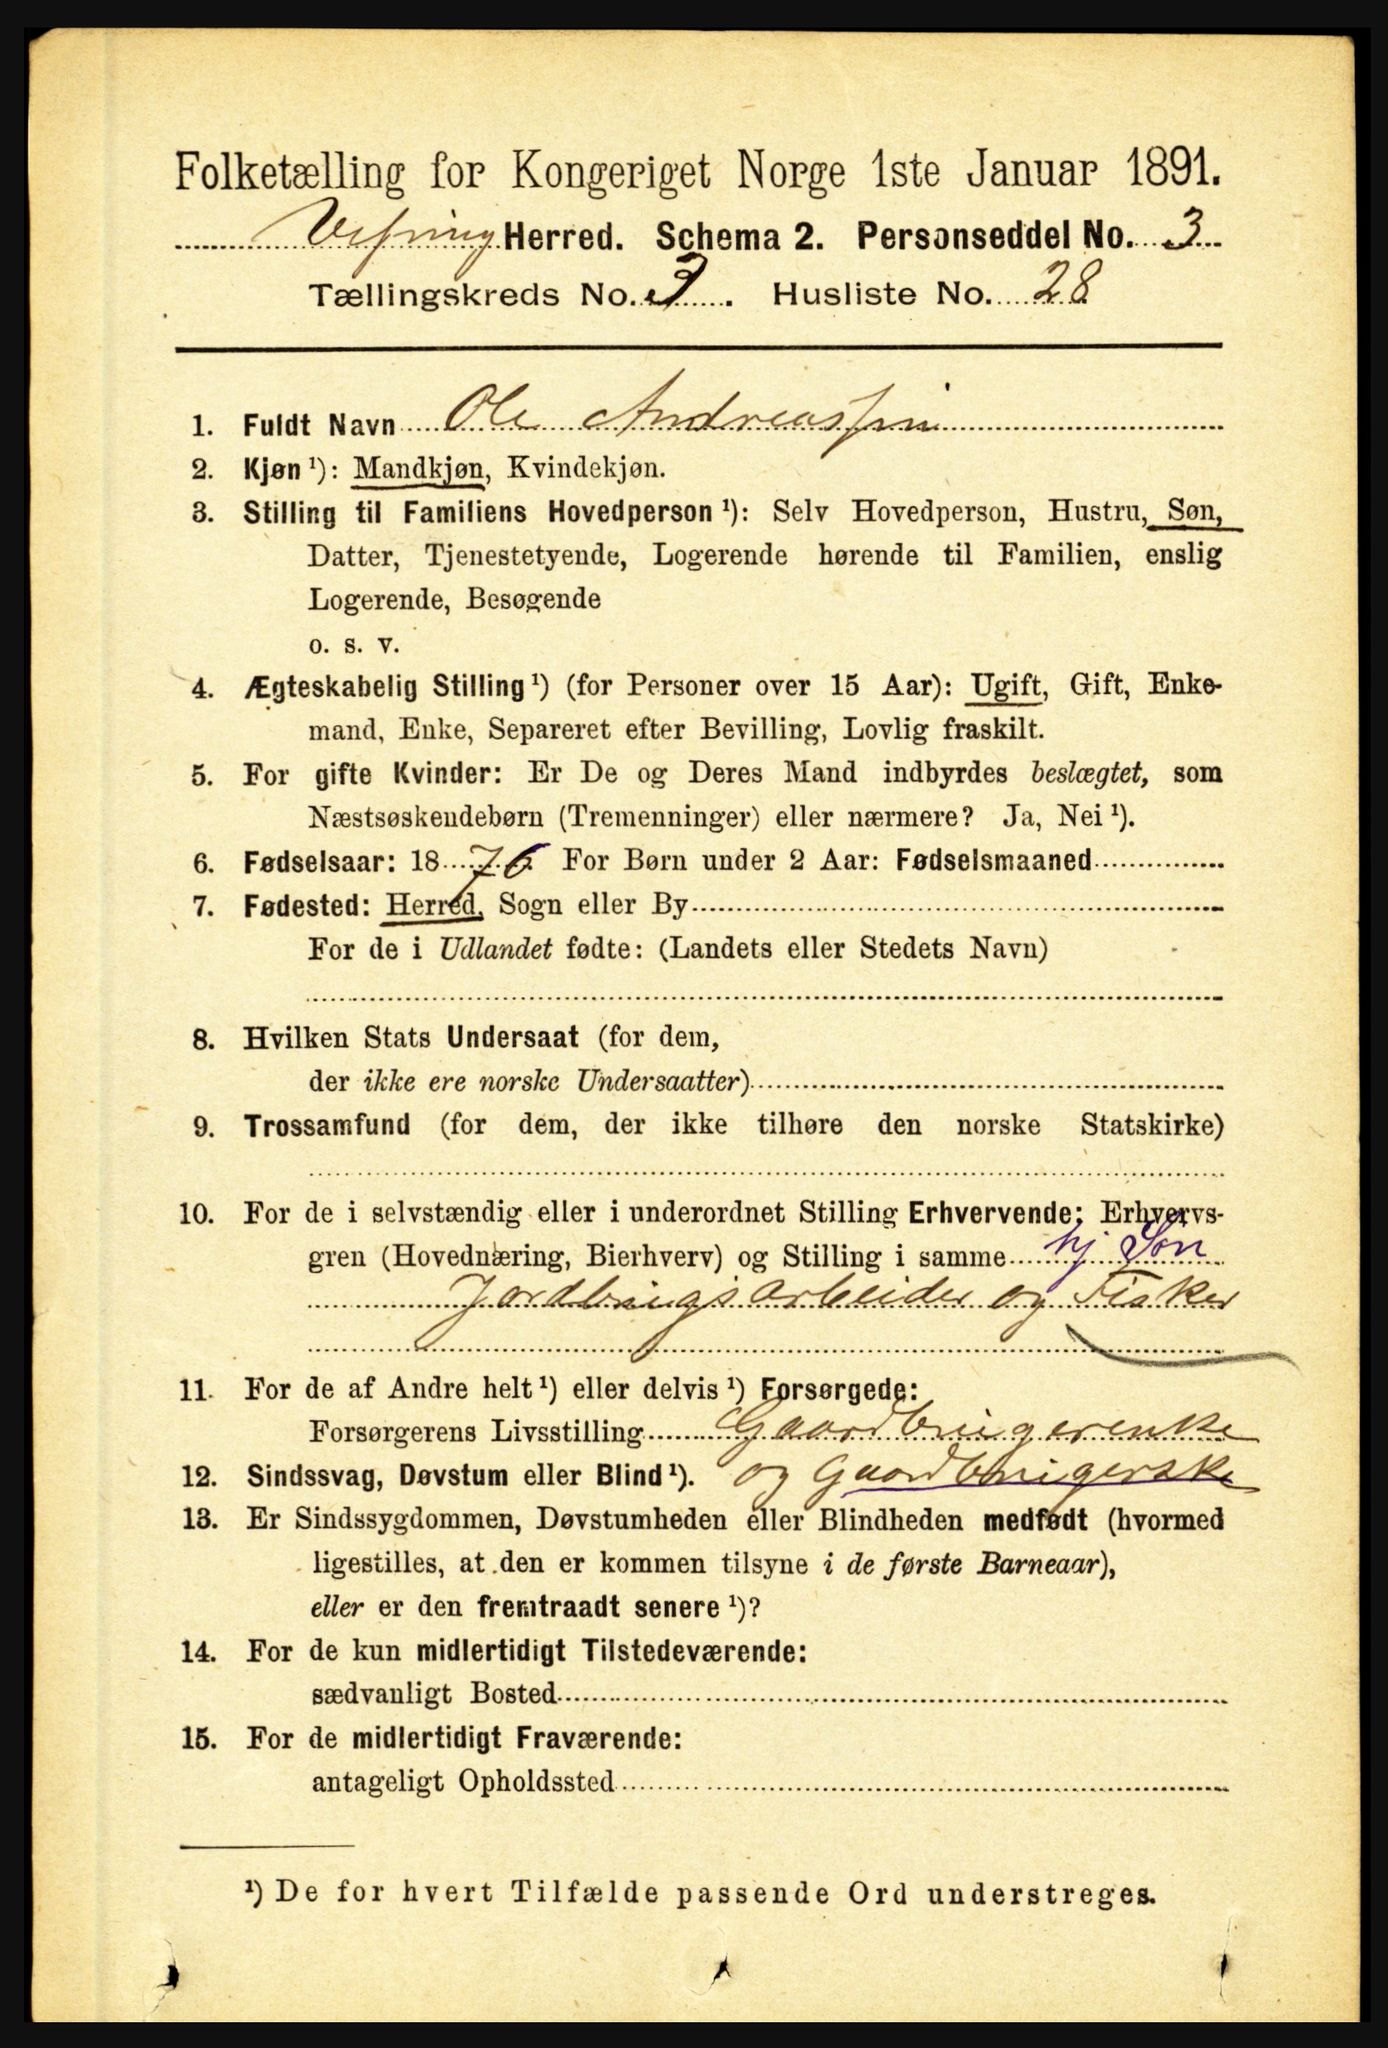 Folketælling for Kongeriget Norge 1ste Januar 1891.
Vefsn Herred. Schema 2. Personseddel No. 3
Tællingskreds No. 3. Husliste No. 28
1. Fuldt Navn Ole Andreassen
2. Kjøn ¹): Mandkjøn, Kvindekjøn.
3. Stilling til Familiens Hovedperson ¹): Selv Hovedperson, Hustru, Søn,
Datter, Tjenestetyende, Logerende hørende til Familien, enslig
Logerende, Besøgende
o. s. v.
4. Ægteskabelig Stilling ¹) (for Personer over 15 Aar): Ugift, Gift, Enke-
mand, Enke, Separeret efter Bevilling, Lovlig fraskilt.
5. For gifte Kvinder: Er De og Deres Mand indbyrdes beslægtet, som
Næstsøskendebørn (Tremenninger) eller nærmere? Ja, Nei ¹).
6. Fødselsaar: 1876 For Børn under 2 Aar: Fødselsmaaned
7. Fødested: Herred, Sogn eller By
For de i Udlandet fødte: (Landets eller Stedets Navn)
8. Hvilken Stats Undersaat (for dem,
der ikke ere norske Undersaatter)
9. Trossamfund (for dem, der ikke tilhøre den norske Statskirke)
10. For de i selvstændig eller i underordnet Stilling Erhvervende: Erhvervs-
gren (Hovednæring, Bierhverv) og Stilling i samme hj Søn
Jordbrugsarbeider og Fisker
11. For de af Andre helt ¹) eller delvis ¹) Forsørgede:
Forsørgerens Livsstilling Gaardbrugerenke
12. Sindssvag, Døvstum eller Blind ¹). og Gaardbrugerske
13. Er Sindssygdommen, Døvstumheden eller Blindheden medfødt (hvormed
ligestilles, at den er kommen tilsyne i de første Barneaar),
eller er den fremtraadt senere ¹)?
14. For de kun midlertidigt Tilstedeværende:
sædvanligt Bosted
15. For de midlertidigt Fraværende:
antageligt Opholdssted
¹) De for hvert Tilfælde passende Ord understreges.